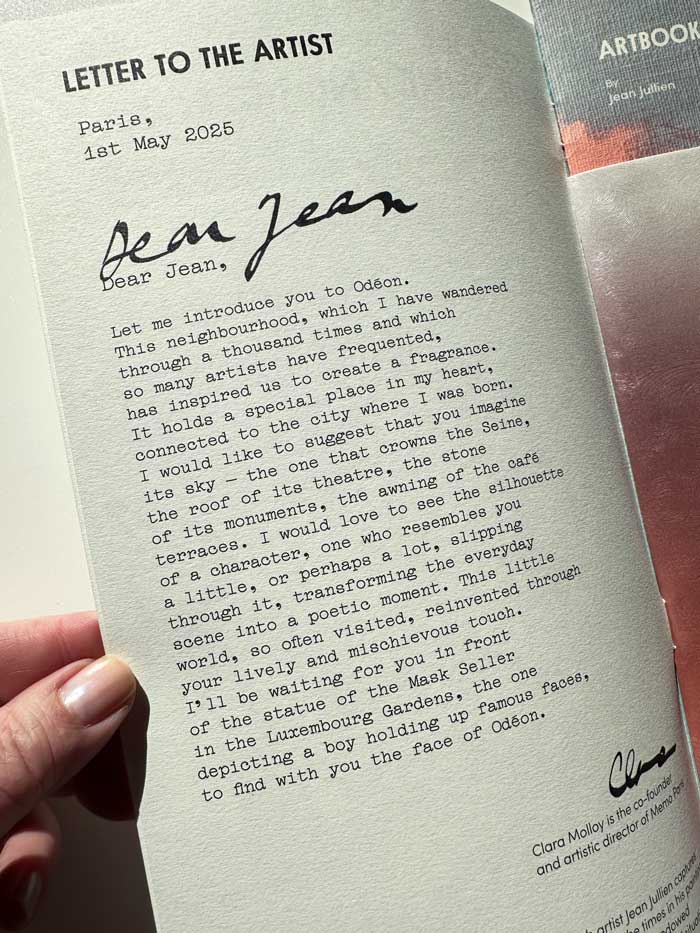 LETTER TO THE ARTIST
Paris,
1st May 2025
Dear Jean
Dear Jean,
Let me introduce you to Odéon.
This neighbourhood, which I have wandered
through a thousand times and which
so many artists have frequented,
has inspired us to create a fragrance.
It holds a special place in my heart,
connected to the city where I was born.
I would like to suggest that you imagine
its sky — the one that crowns the Seine,
the roof of its theatre, the stone
of its monuments, the awning of the café
terraces. I would love to see the silhouette
of a character, one who resembles you
a little, or perhaps a lot, slipping
through it, transforming the everyday
scene into a poetic moment. This little
world, so often visited, reinvented through
your lively and mischievous touch.
I'll be waiting for you in front
of the statue of the Mask Seller
in the Luxembourg Gardens, the one
depicting a boy holding up famous faces,
to find with you the face of Odéon.
Clara
Clara Molloy is the co-founder
and artistic director of Memo Paris
artist Jean Jullien captured
times in his
ARTBOOK
By
Jean Jullien